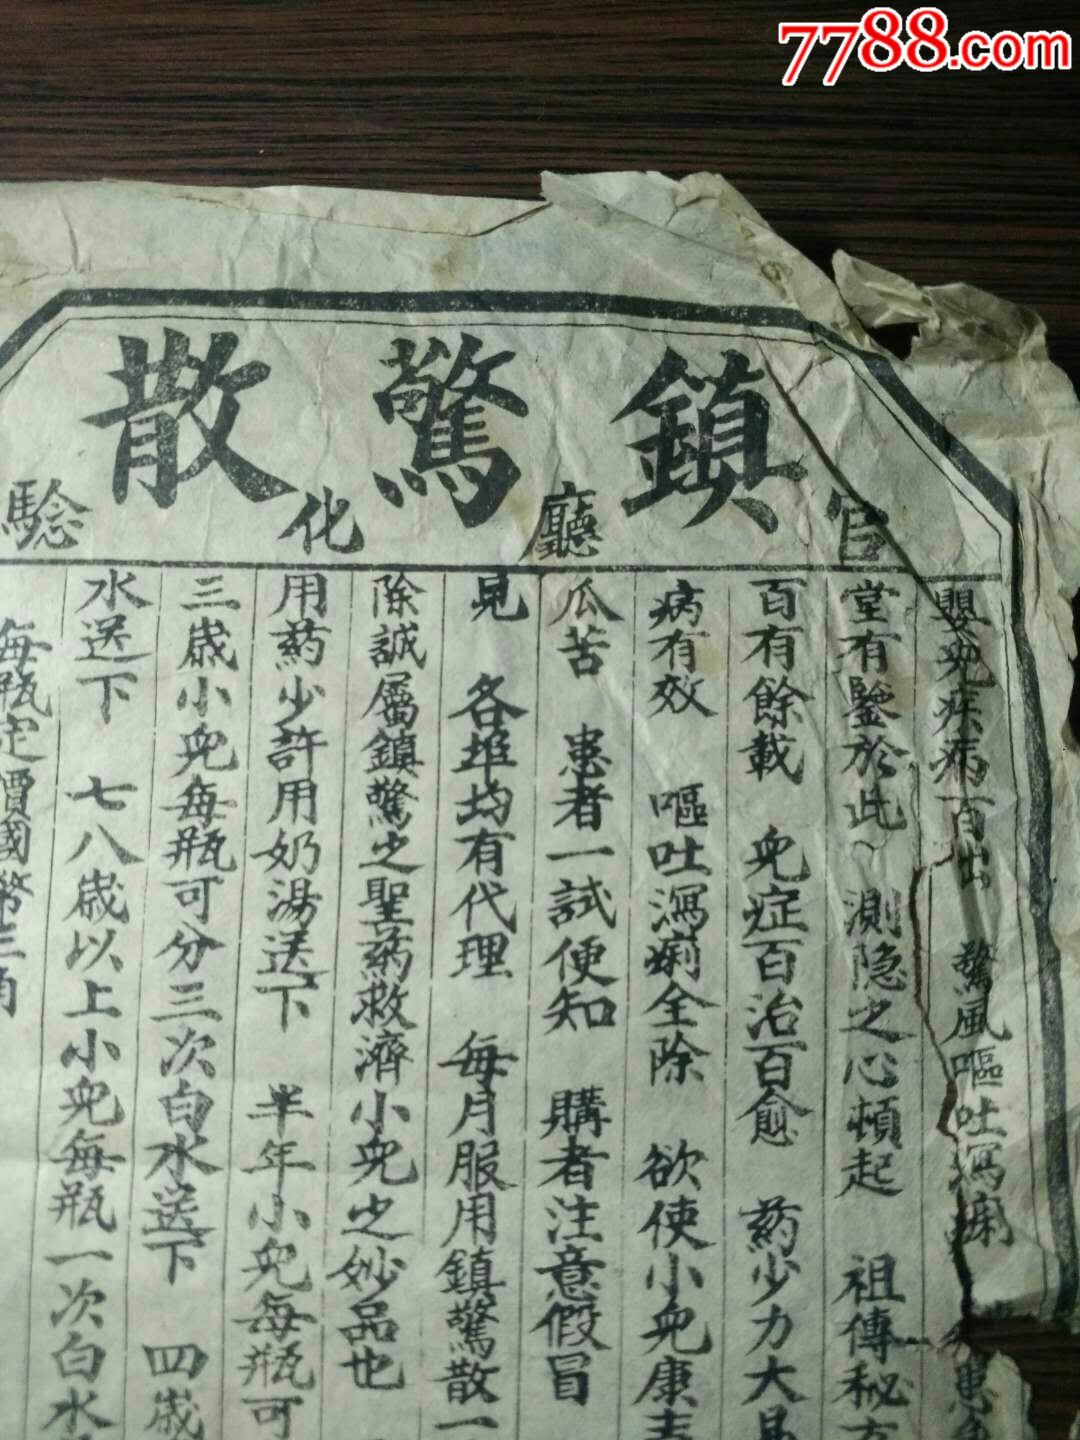 7788.com
鎮驚散
官廳化驗
嬰兒疾病百出　驚風嘔吐瀉痢
堂有鑒於此〻測隐之心頓起　祖傳秘方
百有餘載　兒症百治百愈　药少力大
病有效　嘔吐瀉痢全除　欲使小兒康
瓜苦　患者一試便知　購者注意假冒
見　各埠均有代理　每月服用鎮驚散一
除誠屬鎮驚之聖药救濟小兒之妙品也
用药少許用奶湯送下　半年小兒每瓶可
三歲小兒每瓶可分三次白水送下　四歲
水送下　七八歲以上小兒每瓶一次白水
每瓶定價國幣三角